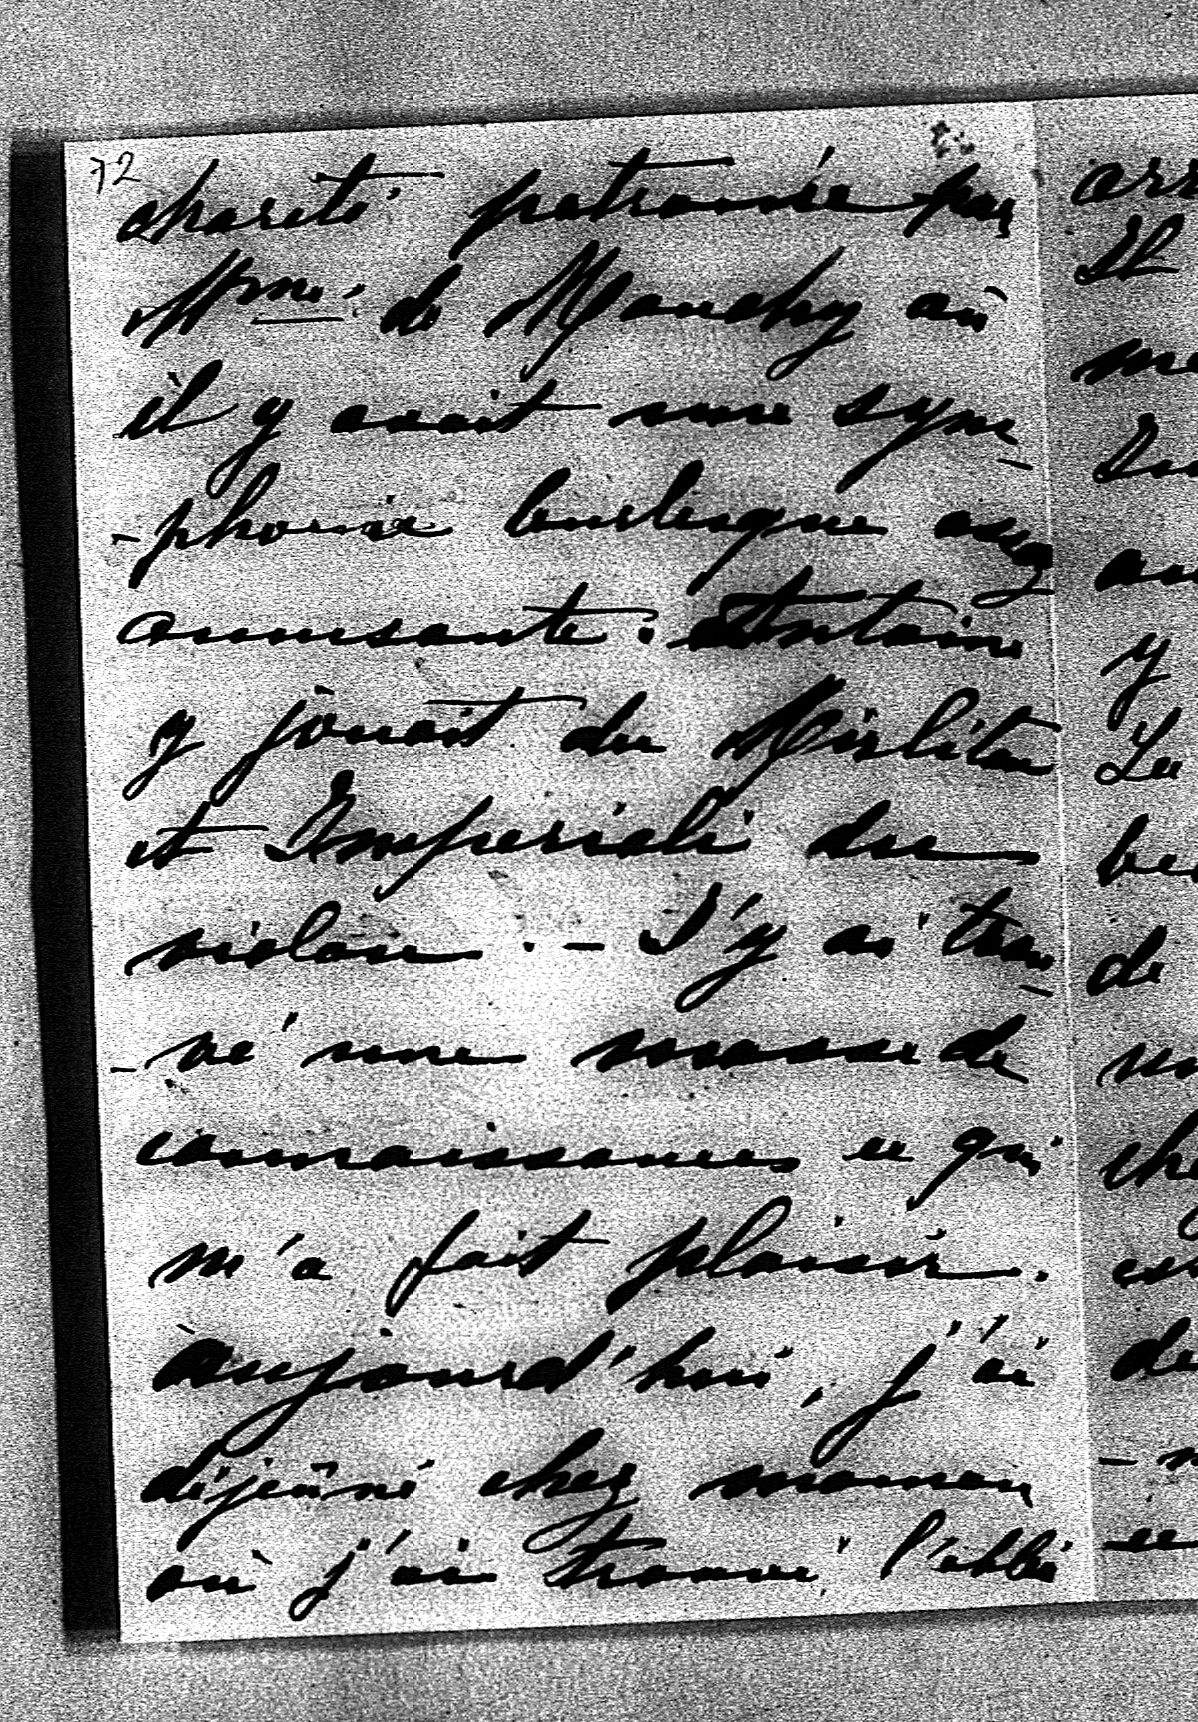 72
charité patronée par
Mme de Mouchy où
il y avait une sym-
-phonie burlesque assez
amusante. Antoine
y jouait du Mirliton
et Imperiali du
violon. - J'y ai trou-
-vé une masse de
connaissances ce qui
m'a fait plaisir.
aujourd'hui, j'ai
déjeûné chez maman
où j'ai trouvé l'abbé
Il
y
de